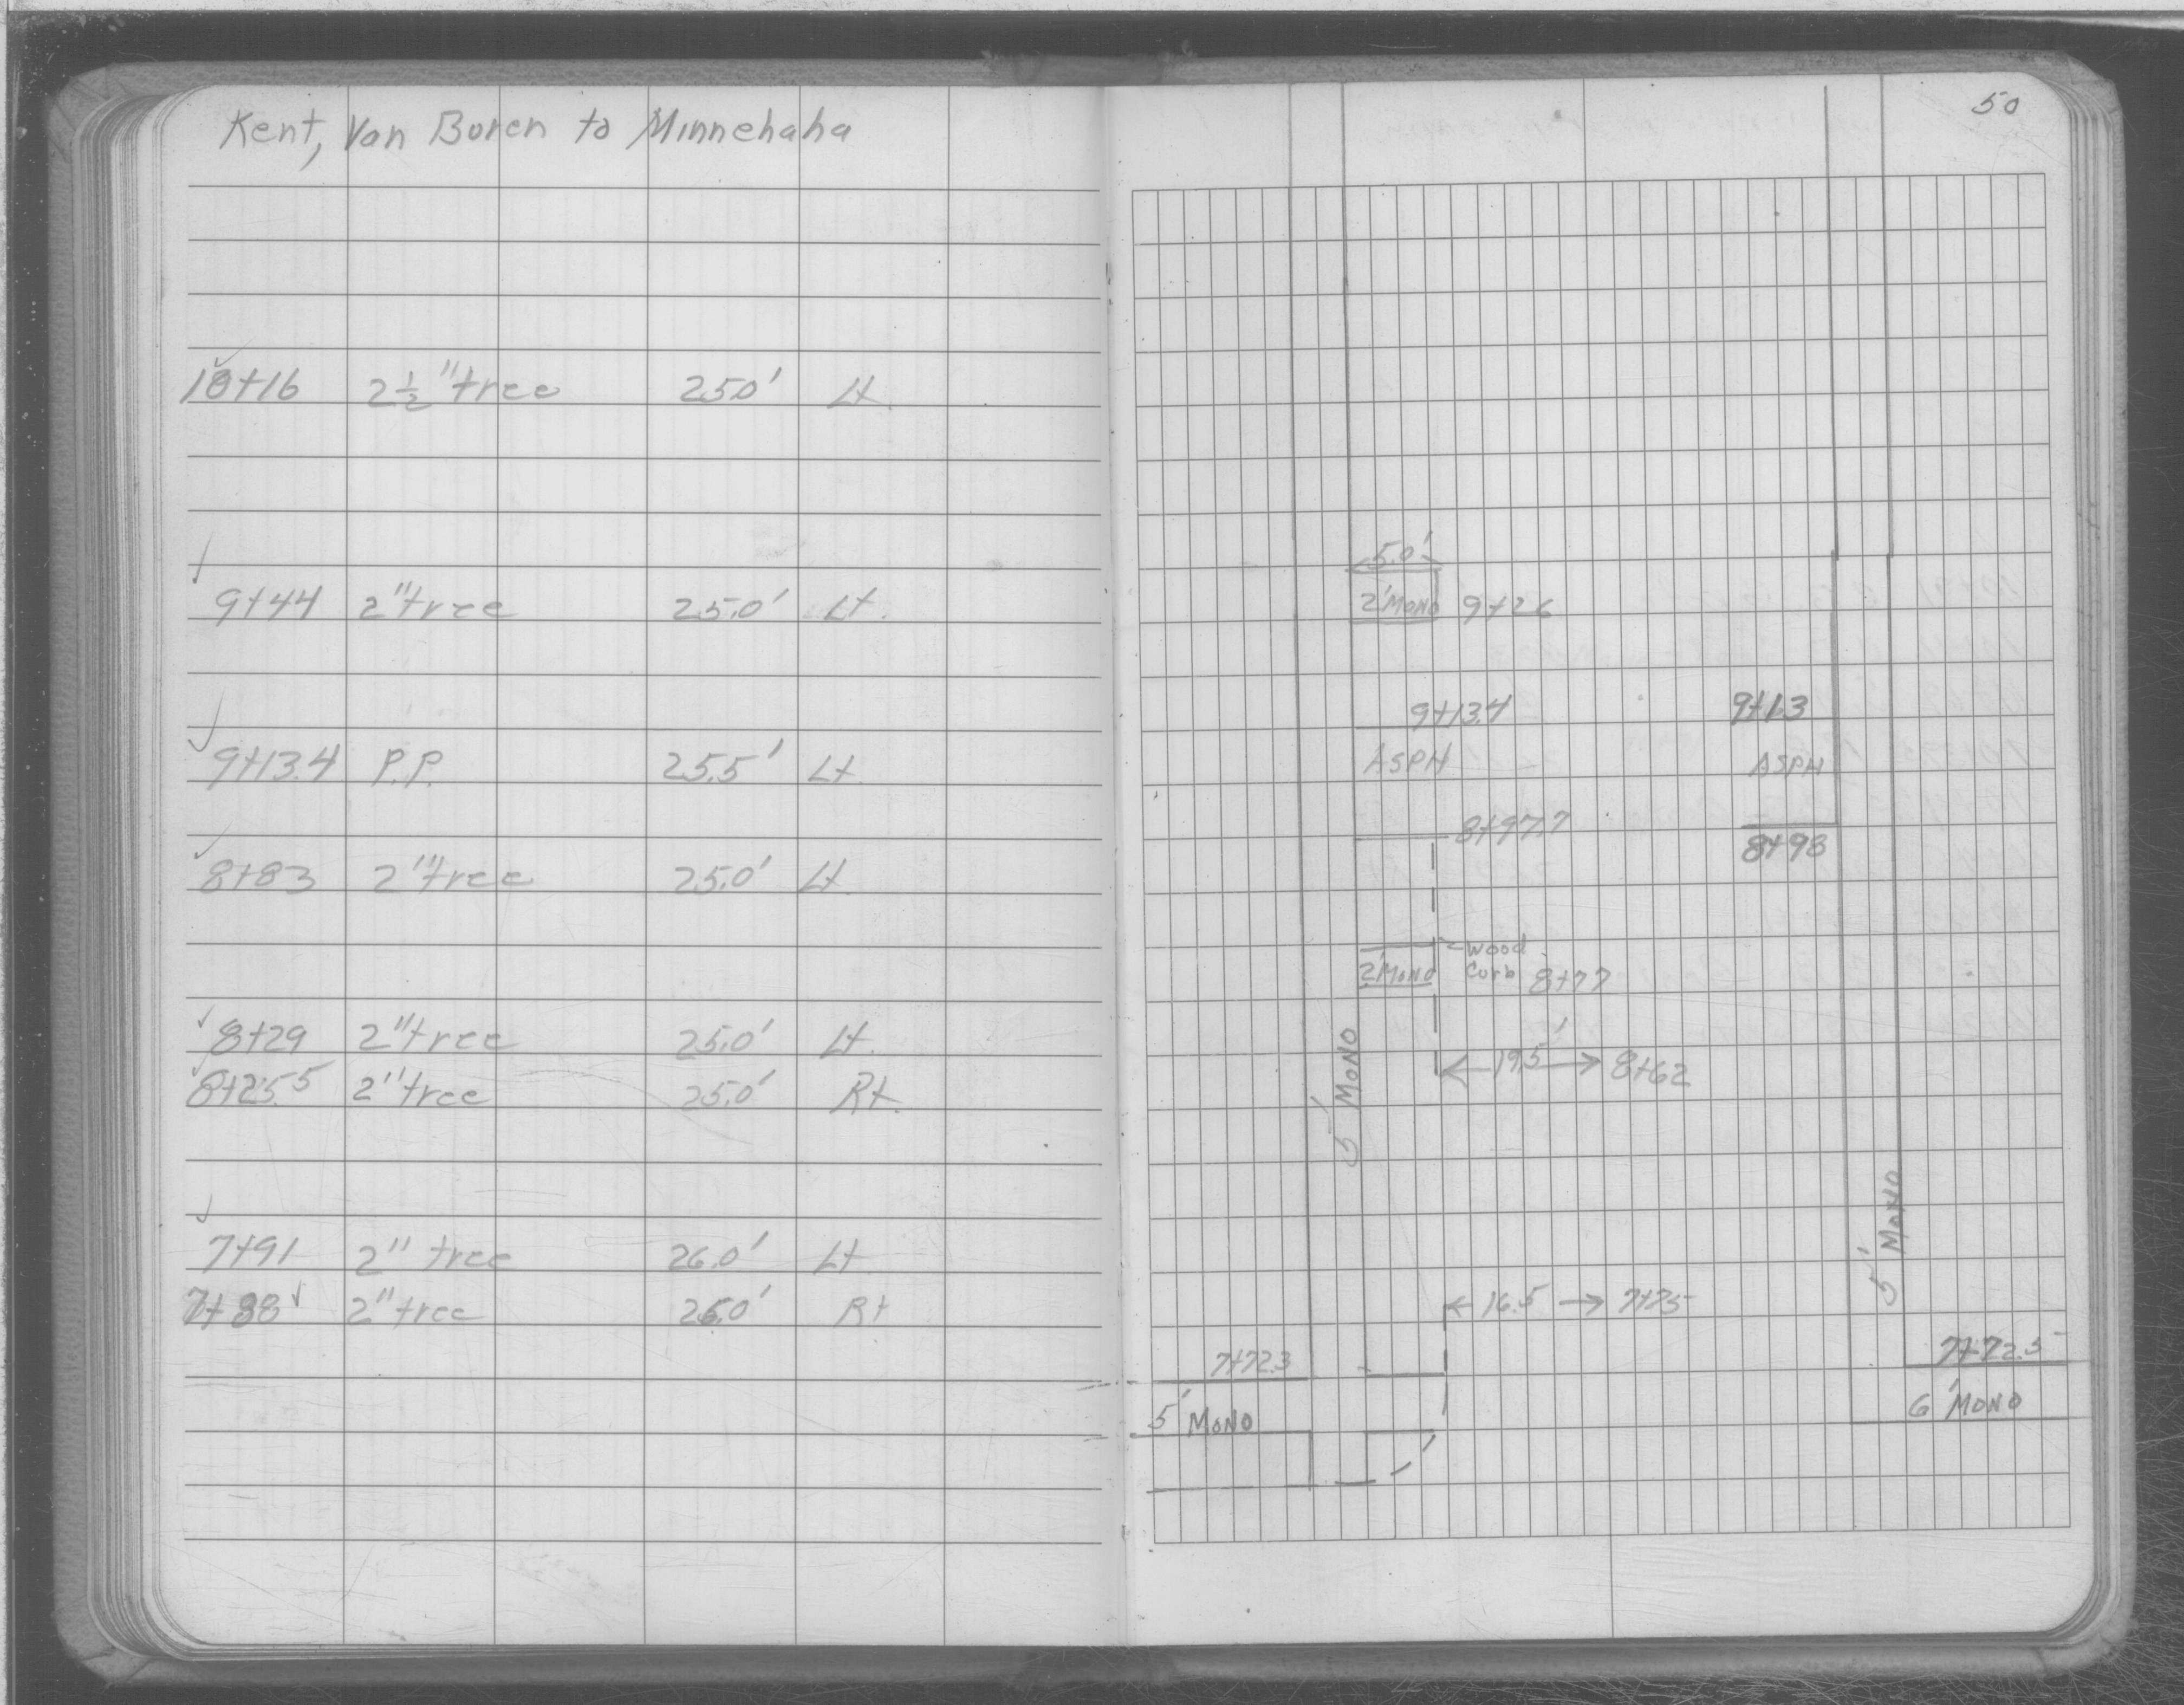 Kent, Van Buren to Minnehaha
10+16 2½" tree 25.0' Lt.
9+44 2" tree 25.0' Lt.
9+13.4 P.P. 25.5' Lt.
8+83 2" tree 25.0' Lt.
8+29 2" tree 25.0' Lt.
8+25.5 2" tree 25.0' Rt.
7+91 2" tree 26.0' Lt.
7+88 2" tree 26.0' Rt
50
5.0'
2' MONO 9+26
9+13.4 9+13
ASPH ASPH
8+97.7
8+98
wood
2' MONO Curb 8+77
19.5' 8+62
5' MONO
5' MONO
16.5 7+75
7+72.3 7+72.5
5' MONO 6' MONO